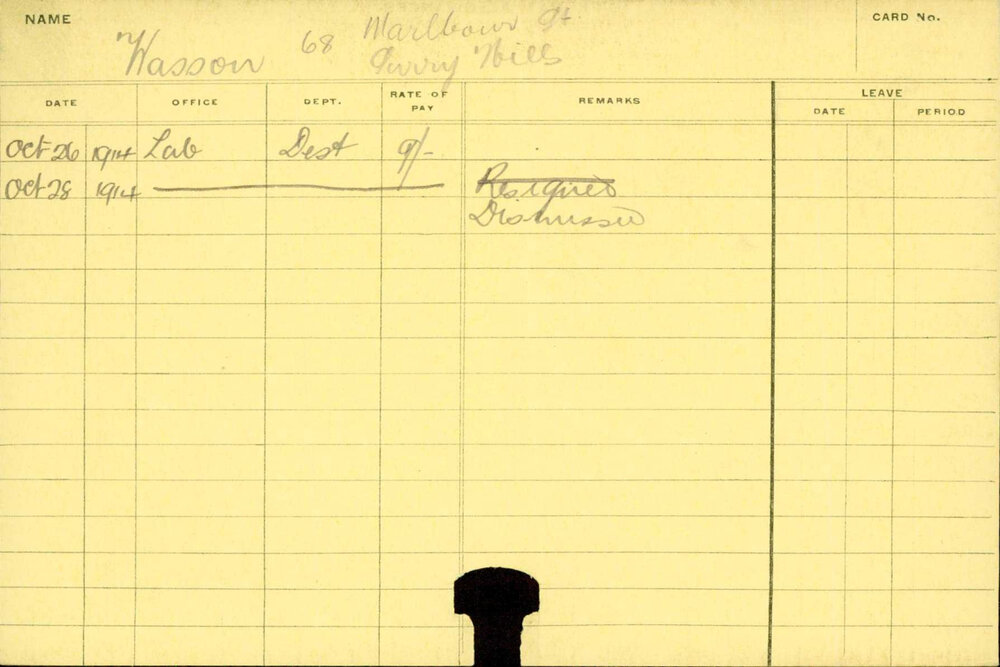 NAME
CARD No.
Wasson 68 Marlbour St
Surry Hills
DATE OFFICE DEPT. RATE OF PAY REMARKS LEAVE
DATE PERIOD
Oct 26 1914 Lab Dest 9/-
Oct 28 1914 Resigned
Dismissed